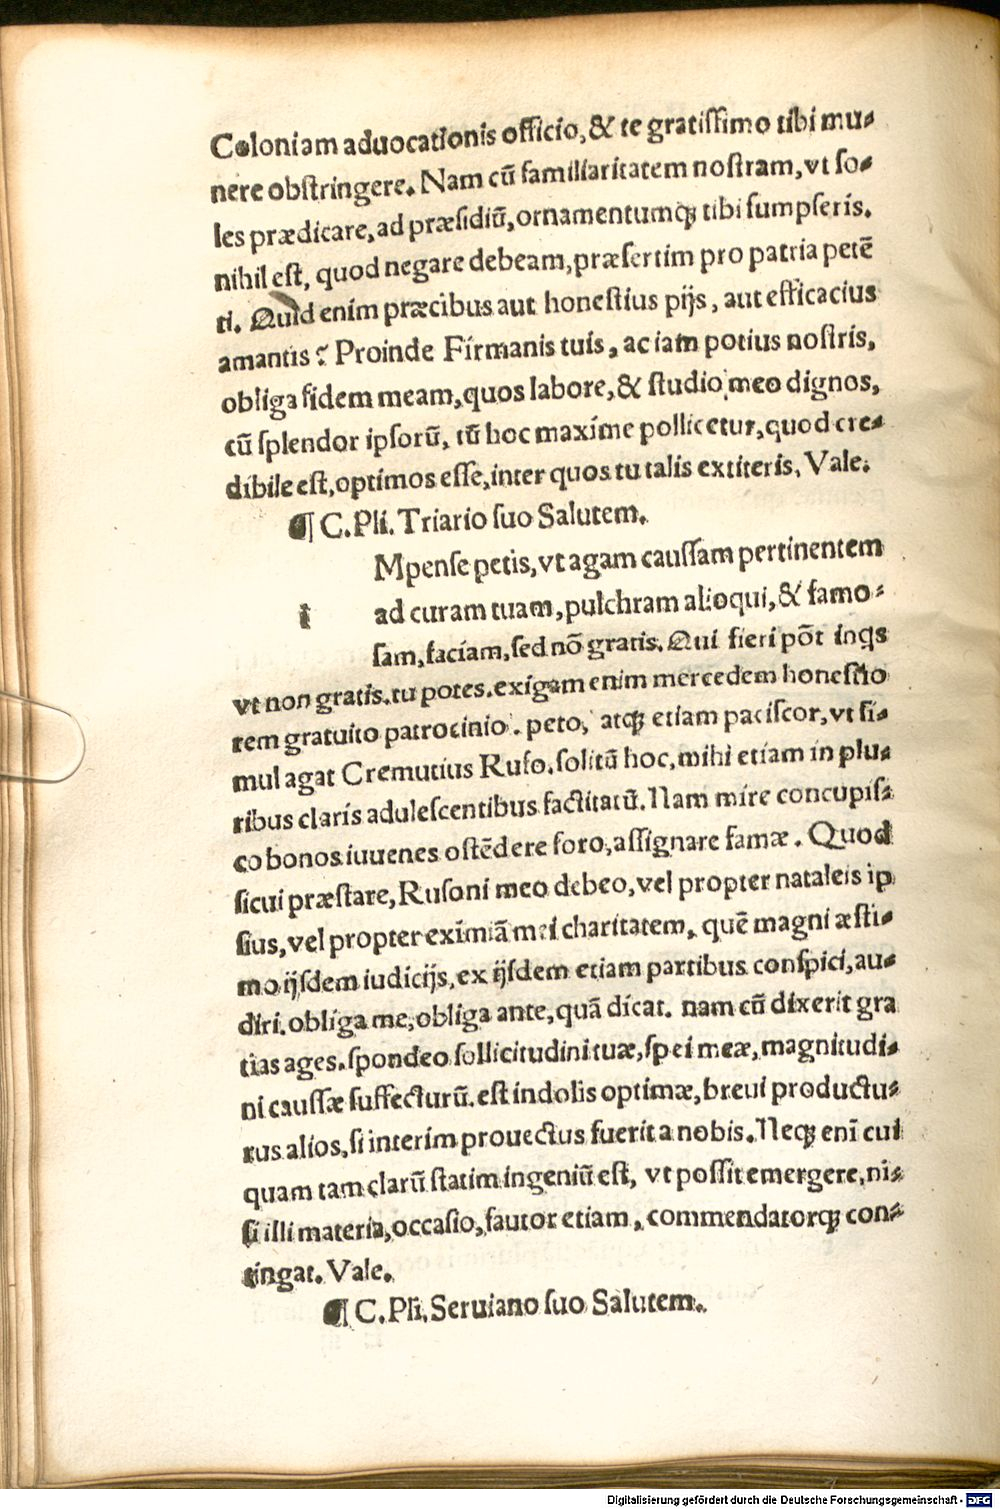 Coloniam aduocationis officio, & te gratissimo tibi mu⸗
nere obstringere. Nam cū familiaritatem nostram, vt so⸗
les prædicare, ad præsidiū, ornamentumqꝫ tibi sumpseris.
nihil est, quod negare debeam, præsertim pro patria petē
ti. Quid enim præcibus aut honestius pijs, aut efficacius
amantis? Proinde Firmanis tuis, ac iam potius nostris,
obliga fidem meam, quos labore, & studio meo dignos,
cū splendor ipsorū, tū hoc maxime pollicetur, quod cre⸗
dibile est, optimos esse, inter quos tu talis extiteris, Vale.
¶ C. Pli. Triario suo Salutem.
Mpense petis, vt agam caussam pertinentem
i ad curam tuam, pulchram alioqui, & famo⸗
sam, faciam, sed nō gratis. Qui fieri pōt inqs
vt non gratis. tu potes. exigam enim mercedem honestio
rem gratuito patrocinio. peto, atqꝫ etiam paciscor, vt si⸗
mul agat Cremutius Ruso. solitū hoc, mihi etiam in plu⸗
ribus claris adulescentibus factitatū. Nam mire concupis⸗
co bonos iuuenes ostēdere foro, assignare famæ. Quod
sicui præstare, Rusoni meo debeo, vel propter nataleis ip
sius, vel propter eximiā mei charitatem, quē magni æsti⸗
mo ijsdem iudicijs, ex ijsdem etiam partibus conspici, au⸗
diri. obliga me, obliga ante, quā dicat. nam cū dixerit gra
tias ages. spondeo sollicitudini tuæ, spei meæ, magnitudi⸗
ni caussæ suffecturū. est indolis optimæ, breui productu⸗
rus alios, si interim prouectus fuerit a nobis. Neqꝫ enī cui
quam tam clarū statim ingeniū est, vt possit emergere, ni⸗
si illi materia, occasio, fautor etiam, commendatorqꝫ con⸗
tingat. Vale.
¶ C. Pli. Seruiano suo Salutem.
Digitalisierung gefördert durch die Deutsche Forschungsgemeinschaft - DFG